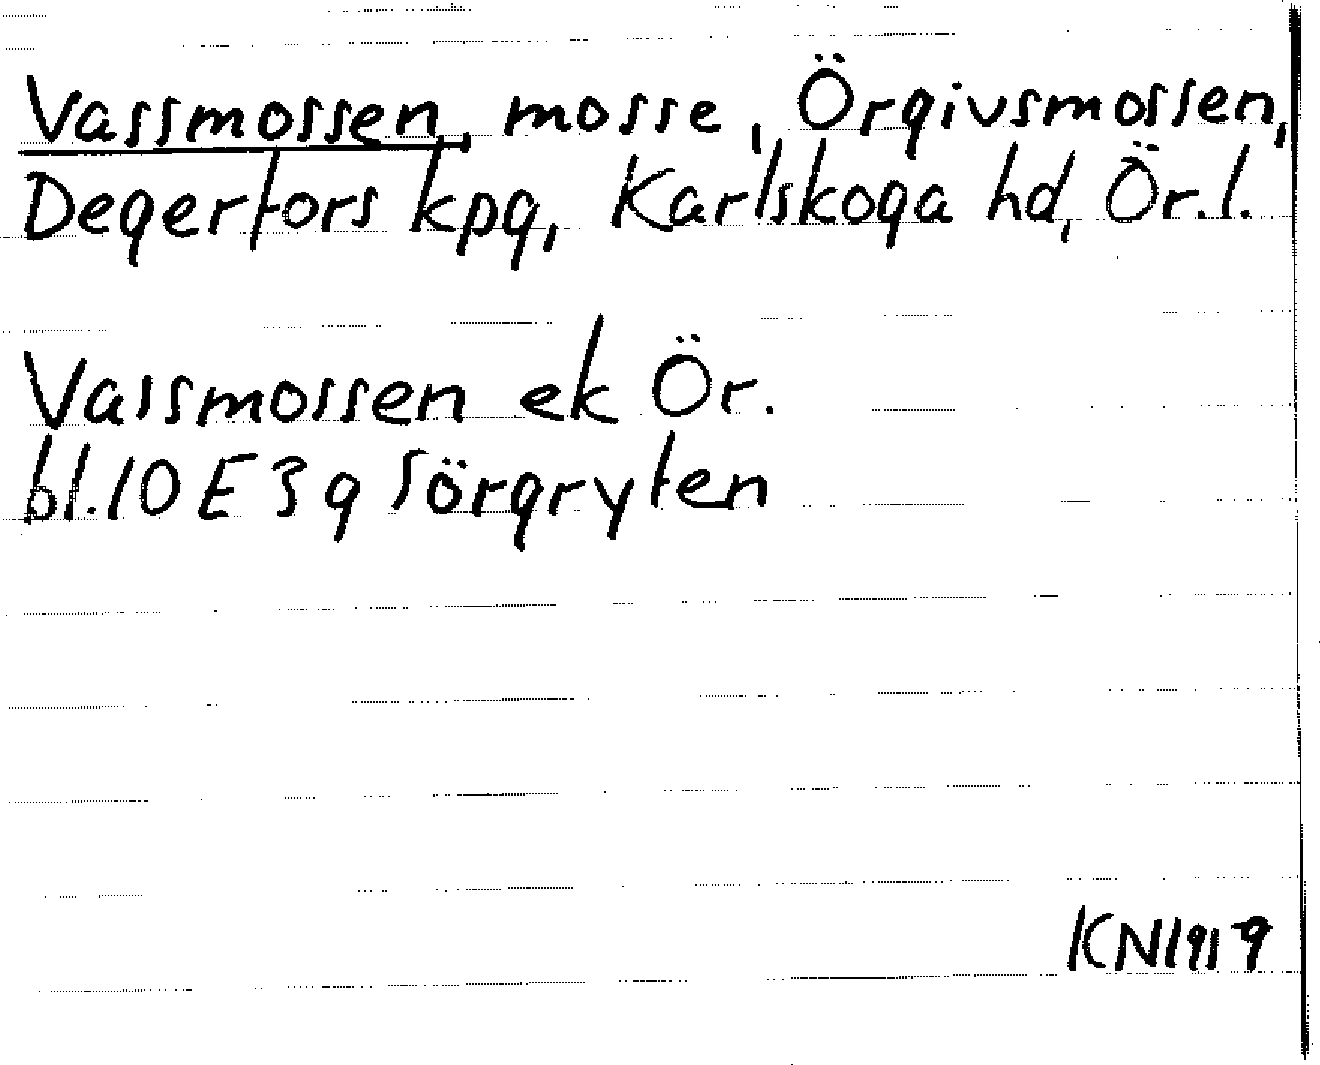 Vassmossen, mosse, Örgivsmossen,
Degerfors kpg, Karlskoga hd, Ör.l.
Vassmossen ek Ör.
bl.10 E 3 g Sörgryten
KN1917